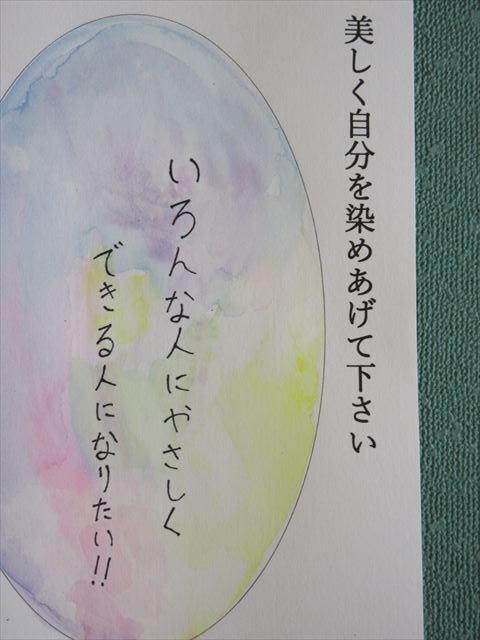 美しく自分を染めあげて下さい
いろんな人にやさしく
できる人になりたい!!